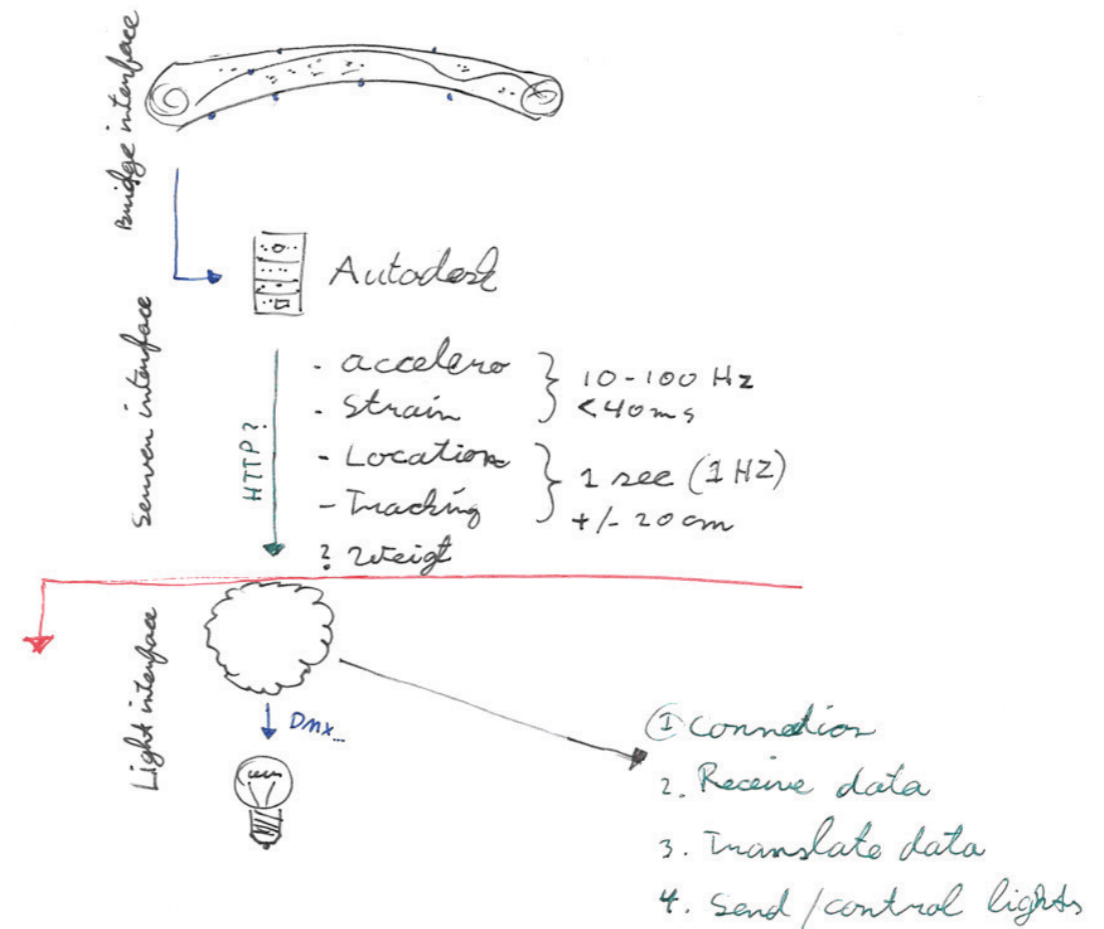 Bridge interface
Autodesk
Server interface
HTTP?
- accelero
- Strain
10-100 Hz
<40ms
- Location
- Tracking
1 sec (1 HZ)
+/- 20 cm
? Weigt
Light interface
DMX...
1 connection
2. Receive data
3. Translate data
4. Send / control lights